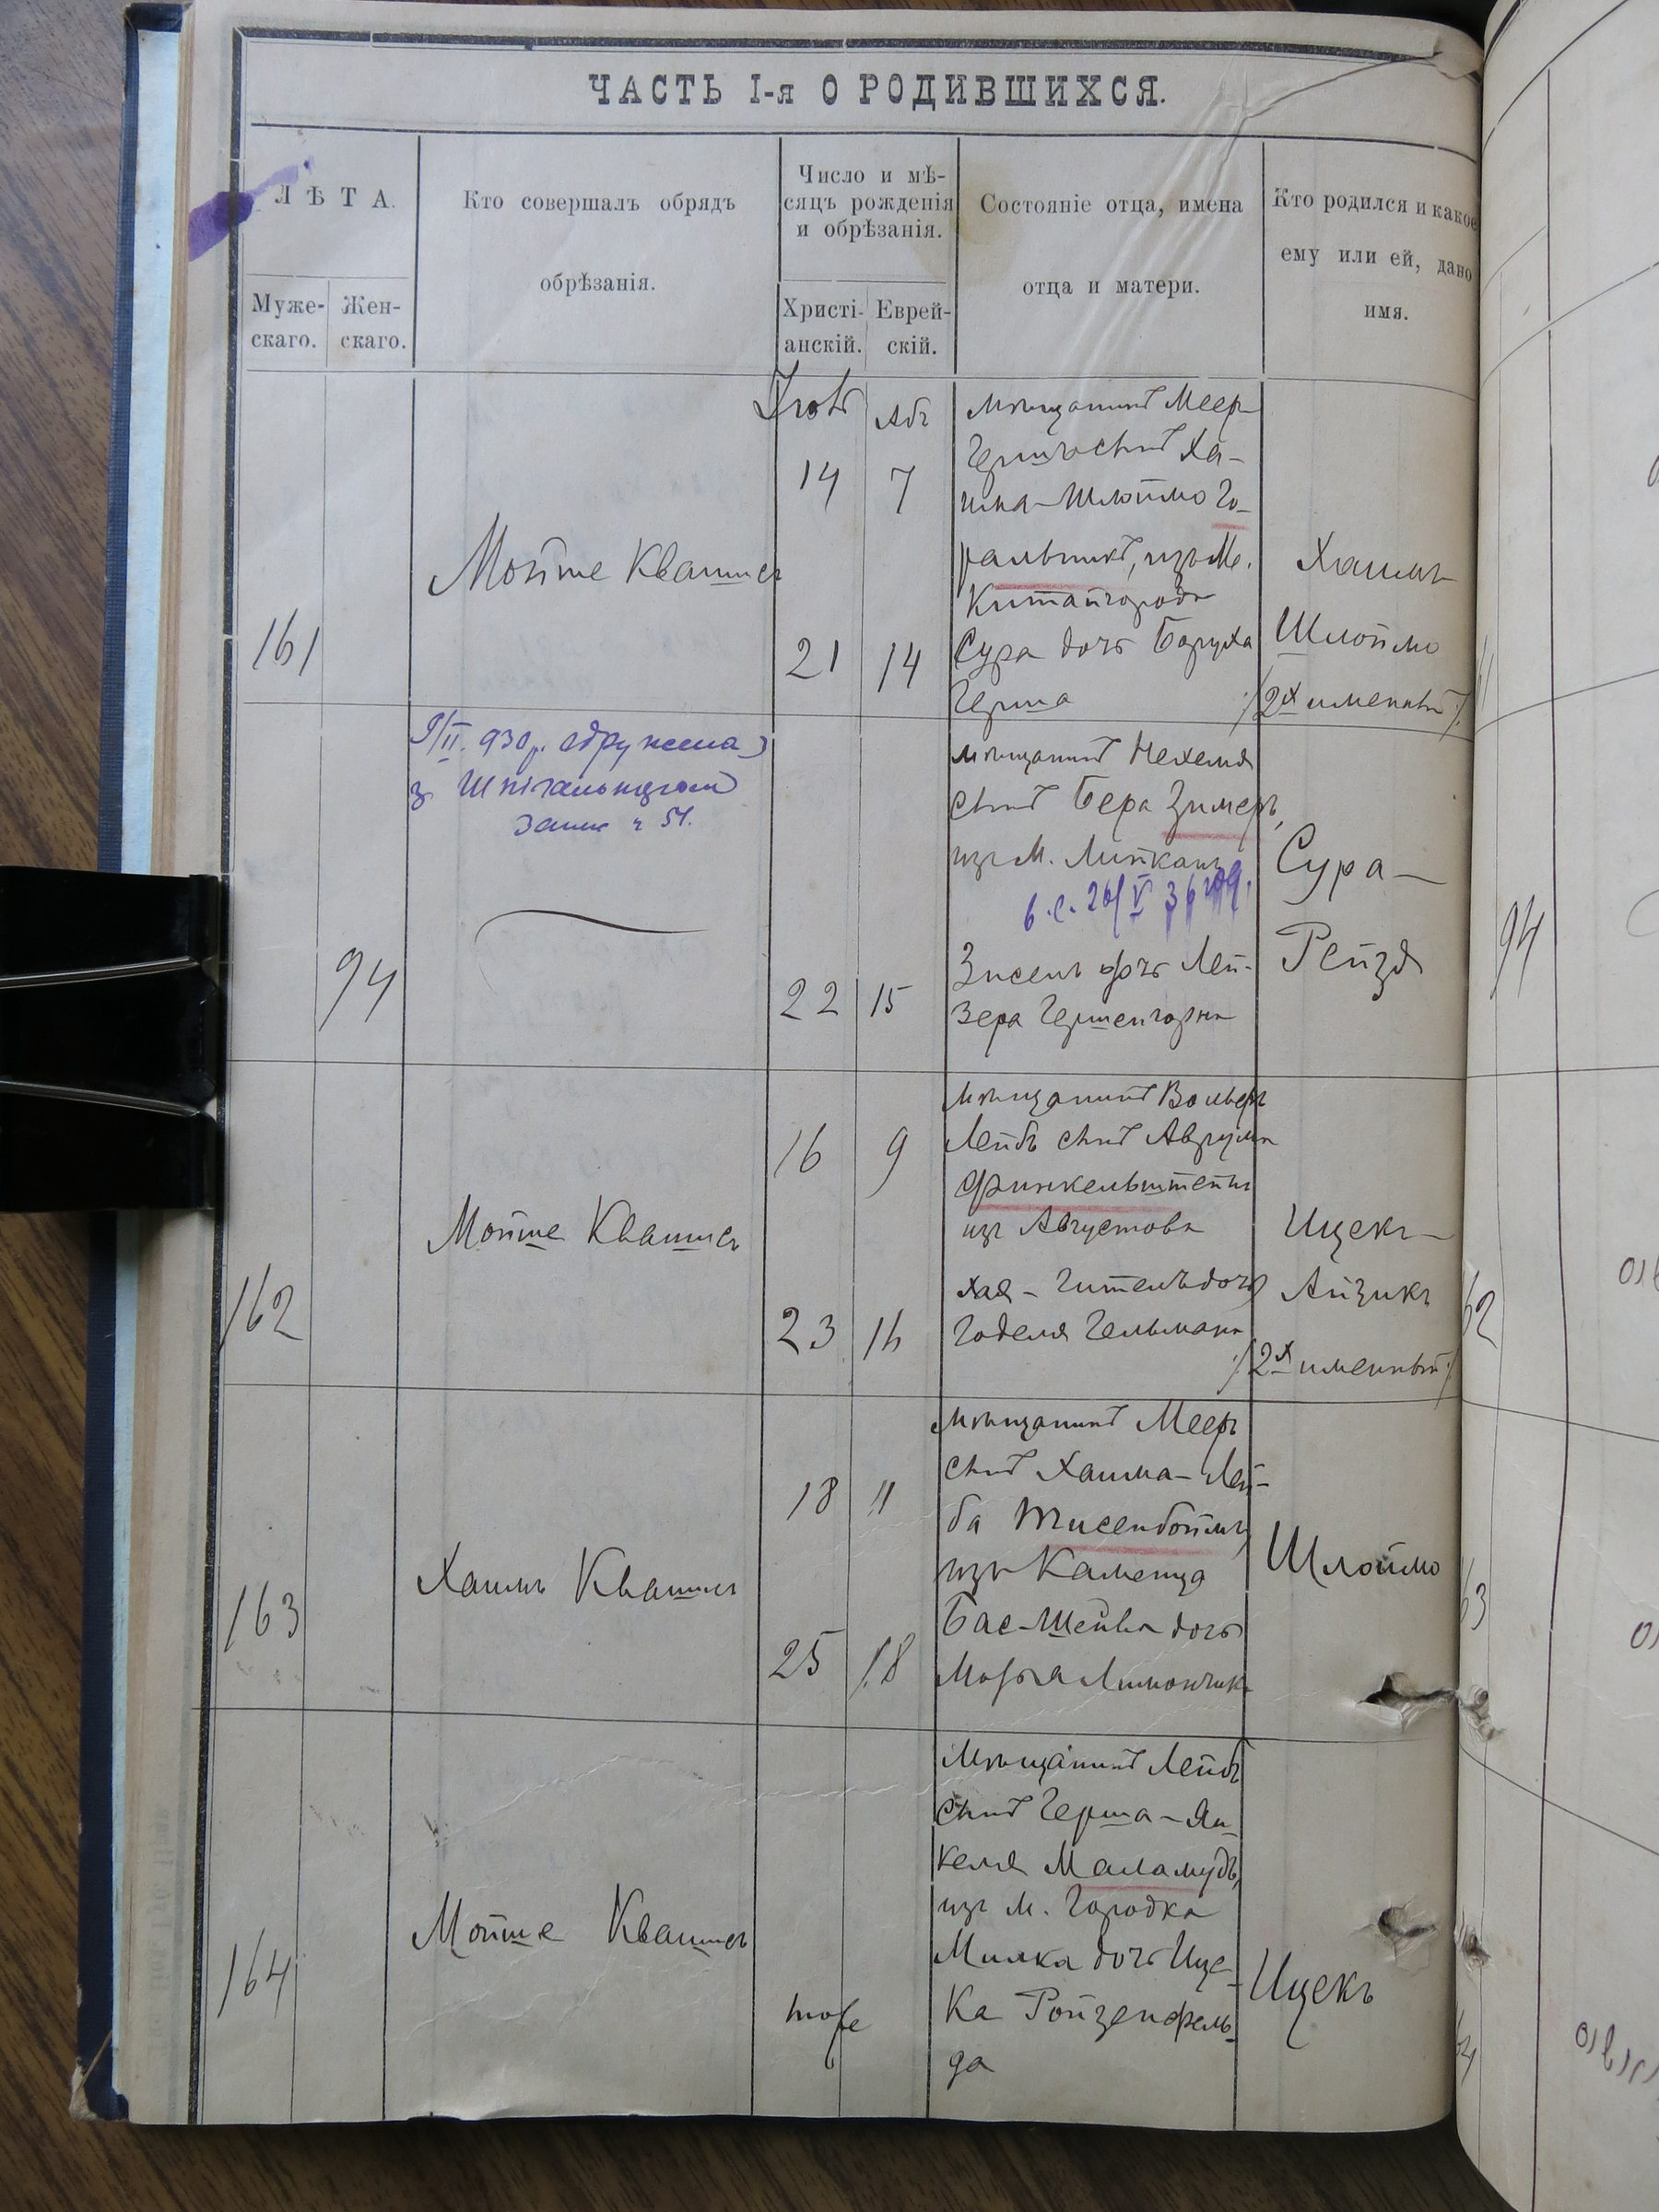 ЧАСТЬ I-я О РОДИВШИХСЯ.
ЛѢТА.
Муже-
скаго.
Жен-
скаго.
Кто совершалъ обрядъ
обрѣзанія.
Число и мѣ-
сяцъ рожденія
и обрѣзанія.
Христі-
анскій.
Еврей-
скій.
Состояніе отца, имена
отца и матери.
Кто родился и какое
ему или ей, дано
имя.
161
Мойше Квашисъ
Абъ
14 7
21 14
мѣщанинъ Меер
Гершъ сынъ Ха-
има-Шлоймо Го-
ральникъ, изъ М.
Китайгорода
Сура дочь Боруха
Герша
Хаимъ
Шлоймо
/2х именный/
94
9/II. 930 р. одружена
з Шпігальніцким
запис ч 51.
22 15
мѣщанинъ Нехемія
сынъ Бера Зимеръ,
изъ М. Липканъ
в.с. 26/V 36
Зисель дочь Лей-
зера Гершенгорна
Сура-
Рейзя
94
162
Мойше Квашисъ
16 9
23 16
мѣщанинъ Вольфъ
Лейбъ сынъ Аврума
Финкельштейнъ
изъ Августова
Хая-Гитель дочь
Годеля Гельмана
Ицекъ-
Айзикъ
/2х именный/
62
163
Хаимъ Квашисъ
18 11
25 18
мѣщанинъ Мееръ
сынъ Хаима-Лей-
ба Тисенбоймъ
изъ Каменца
Бас-Шейва дочь
Лимончика
Шлоймо
63
164
Мойше Квашисъ
тоже
Мѣщанинъ Лейбъ
сынъ Герша-Ян-
келя Маламудъ,
изъ М. Городка
Милка дочь Ице-
ка Ройзенфель-
да
Ицекъ
64